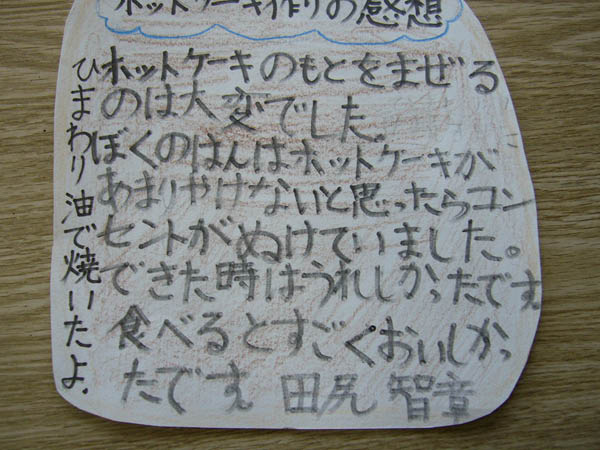 ホットケーキ作りの感想
ホットケーキのもとをまぜる
のは大変でした。
ぼくのはんはホットケーキが
あまりやけないと思ったらコン
セントがぬけていました。
できた時はうれしかったです
食べるとすごくおいしかっ
たです 田尻 智章
ひまわり油で焼いたよ.